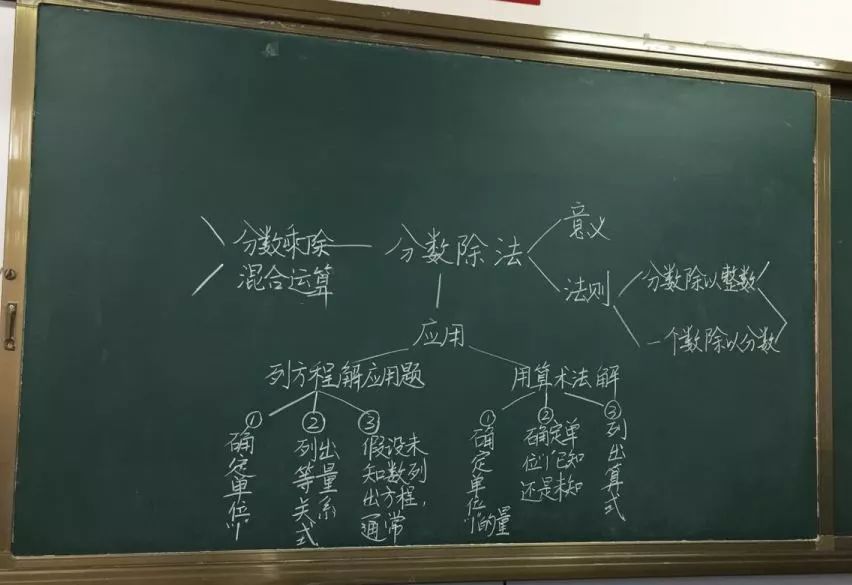 分数乘除
混合运算
分数除法
意义
法则
分数除以整数
一个数除以分数
应用
列方程解应用题
①
确定单位"1"
②
列出等量关系式
③
假设未
知数列
出方程,
通常
用算术法解
①
确定单位"1"的量
②
确定单
位"1"已知
还是未知
③
列出算式